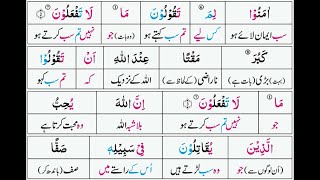 اٰمَنُوْا لِمَ تَقُوْلُوْنَ مَا لَا تَفْعَلُوْنَ
سب ایمان لائے ہو کس لیے تم سب کہتے ہو (وہ بات) جو نہیں تم سب کرتے ہو
كَبُرَ مَقْتًا عِنْدَ اللّٰهِ اَنْ تَقُوْلُوْا
(بہت) بڑی (بات ہے) ناراضی (کے لحاظ سے) اللہ کے نزدیک کہ تم سب کہو
مَا لَا تَفْعَلُوْنَ اِنَّ اللّٰهَ يُحِبُّ
جو نہیں تم سب کرتے ہو بلاشبہ اللہ وہ محبت کرتا ہے
الَّذِيْنَ يُقَاتِلُوْنَ فِيْ سَبِيْلِهٖ صَفًّا
(ان لوگوں سے) جو وہ سب لڑتے ہیں اُس کے راستے میں صف (باندھ کر)